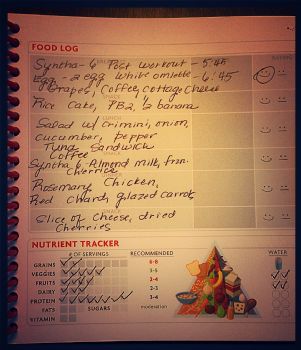 FOOD LOG
RATING
Syntha-6 Post workout - 5:45
Egg - 2 egg white omlette - 6:45
Grapes, Coffee, cottage cheese
SNACK
Rice Cake, PB2, ½ banana
LUNCH
Salad w/ crimini, onion,
cucumber, pepper
Tuna Sandwich
Coffee
SNACK
Syntha 6 - Almond milk, frzn.
Cherries
DINNER
Rosemary Chicken,
Red chard, glazed carrots
SNACK
Slice of Cheese, dried
Cherries
NUTRIENT TRACKER
# OF SERVINGS
RECOMMENDED
WATER
GRAINS
6-8
VEGGIES
3-5
FRUITS
2-4
DAIRY
2-3
PROTEIN
3-4
FATS
SUGARS
moderation
VITAMIN